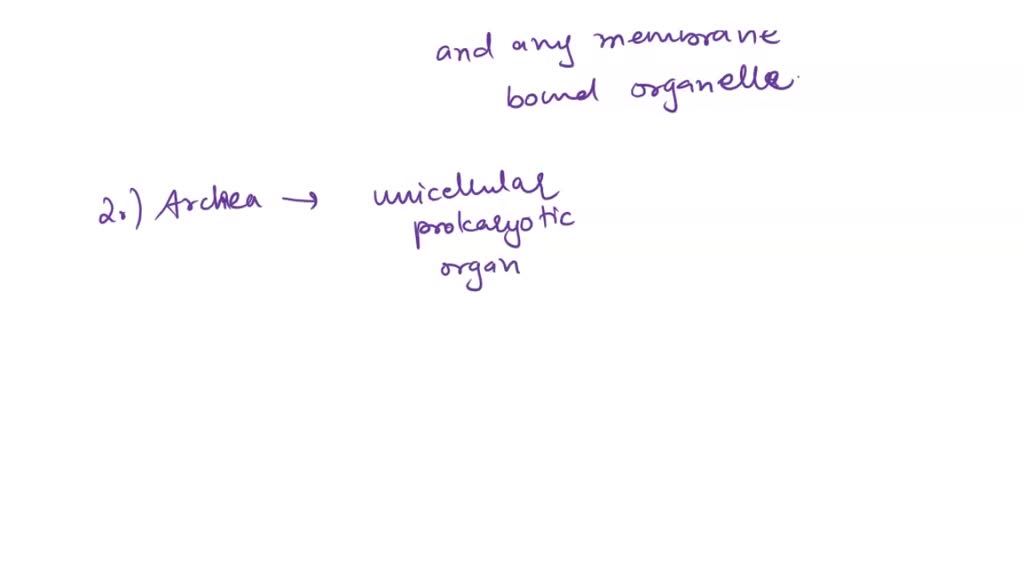 and any membrane
bound organelle.
2.) Archea → unicellular
prokaryotic
organ